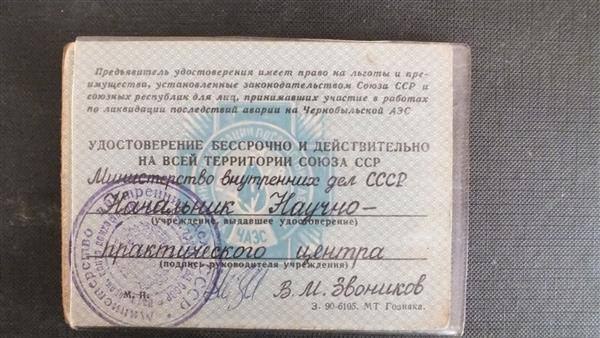 Предъявитель удостоверения имеет право на льготы и пре-
имущества, установленные законодательством Союза ССР и
союзных республик для лиц, принимавших участие в работах
по ликвидации последствий аварии на Чернобыльской АЭС
УДОСТОВЕРЕНИЕ БЕССРОЧНО И ДЕЙСТВИТЕЛЬНО
НА ВСЕЙ ТЕРРИТОРИИ СОЮЗА ССР
Министерство внутренних дел СССР
Начальник Научно-
(учреждение, выдавшее удостоверение)
практического центра
(подпись руководителя учреждения)
М. П.
В. М. Звоников
З. 90-6105. МТ Гознака.
ЧАЭС